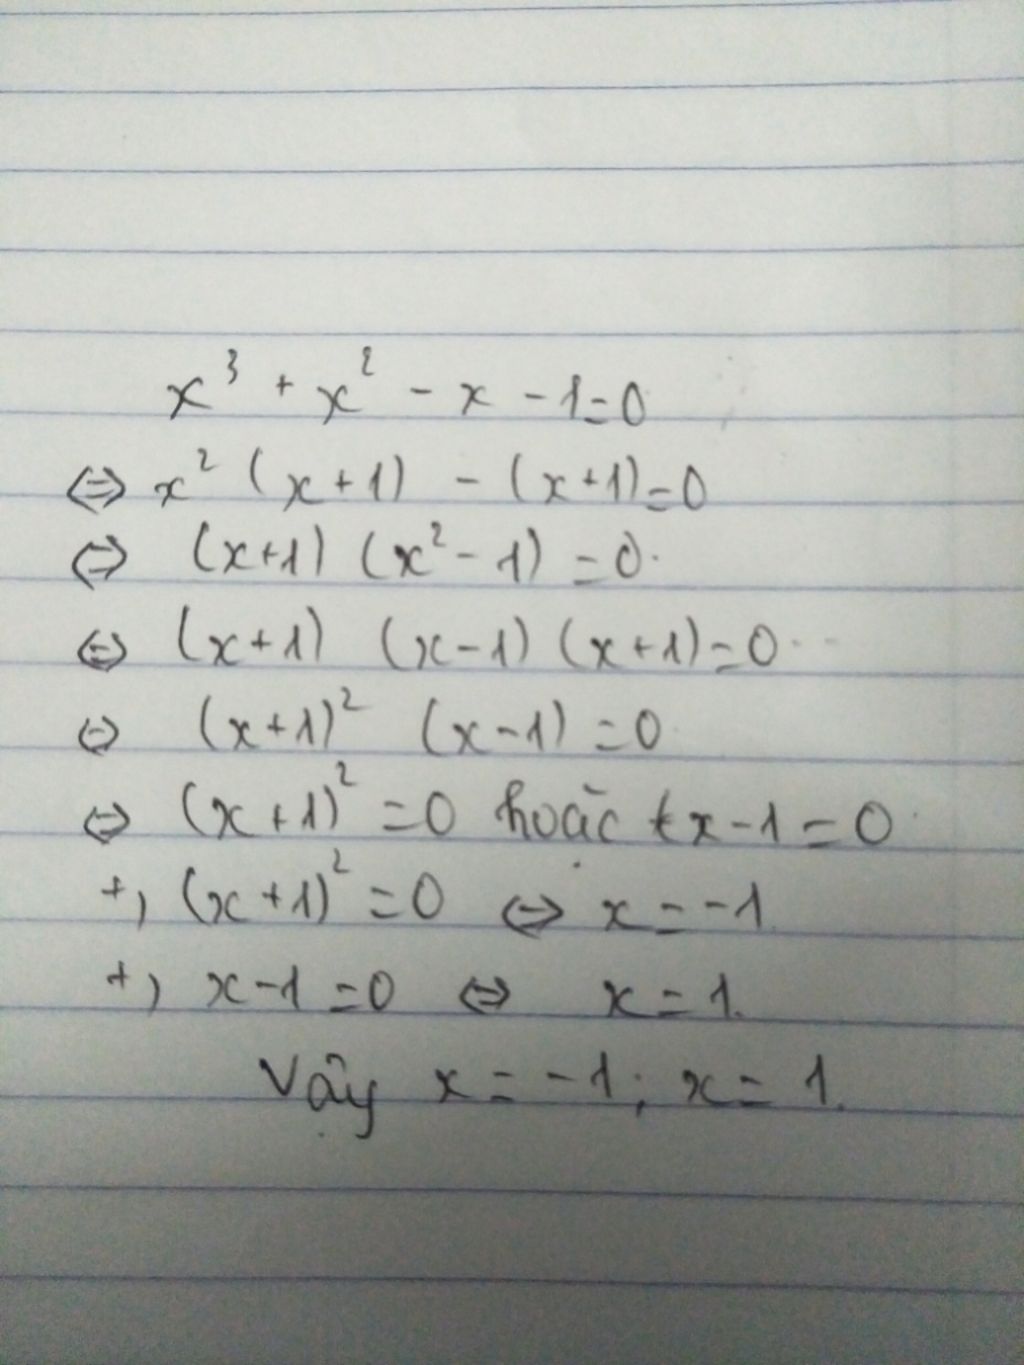 x³ + x² - x - 1 = 0
⇔ x² (x+1) - (x+1) = 0
⇔ (x+1) (x² - 1) = 0.
⇔ (x+1) (x-1) (x+1) = 0
⇔ (x+1)² (x-1) = 0
⇔ (x+1)² = 0 hoặc x-1 = 0
+, (x+1)² = 0 ⇔ x = -1.
+, x-1 = 0 ⇔ x = 1.
Vậy x = -1; x = 1.